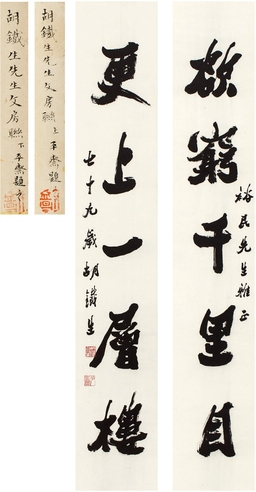 欲窮千里目
裕民先生雅正
更上一層樓
七十九歲胡鐵生
胡鐵生先生文房聯上 平齋題
胡鐵生先生文房聯下 平齋題